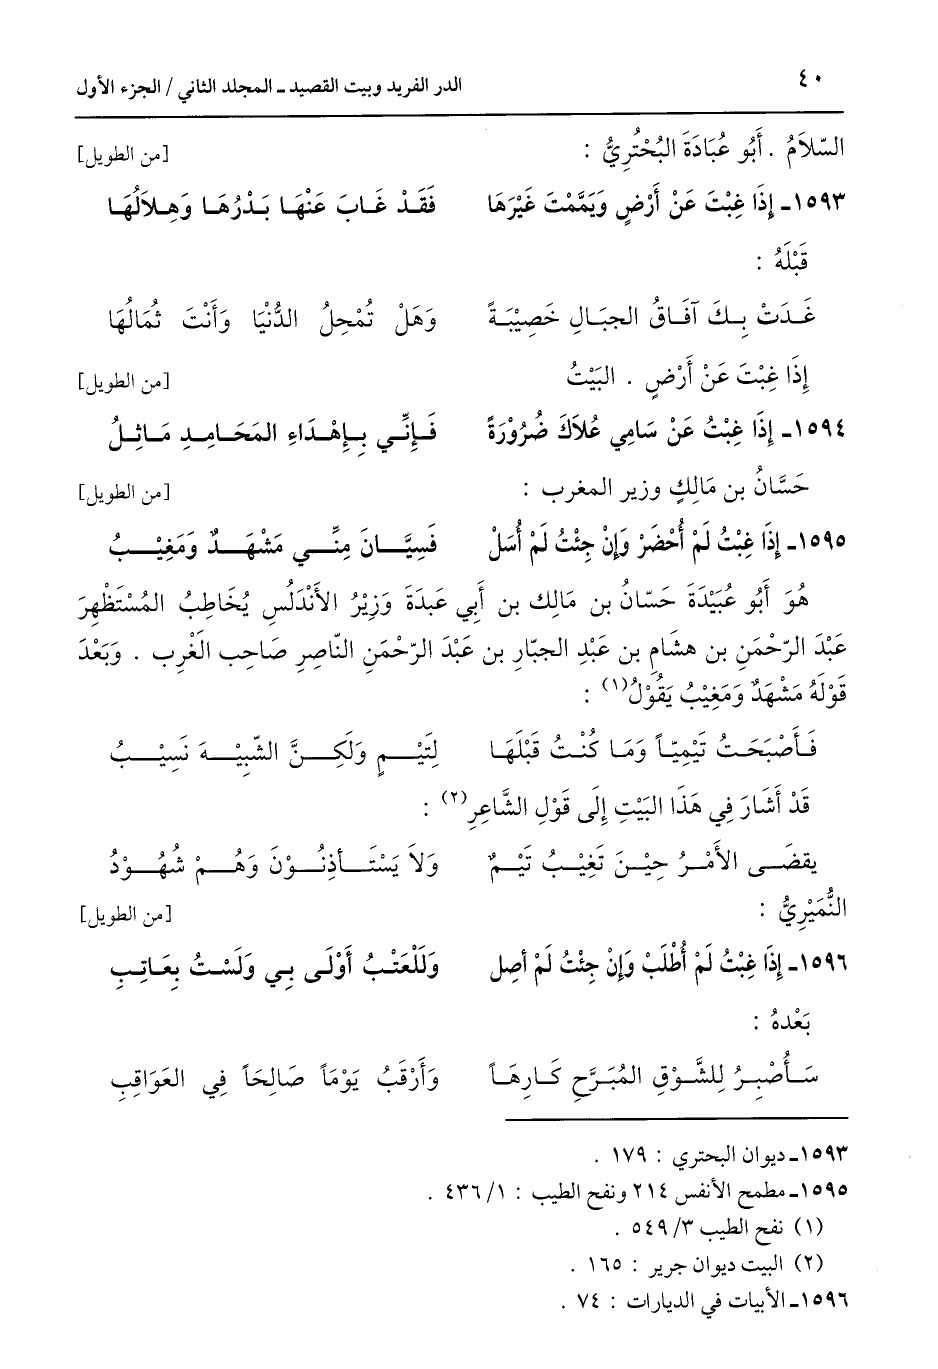 ٤٠ الدر الفريد وبيت القصيد ـ المجلد الثاني / الجزء الأول
السّلاَمُ . أَبُو عُبَادَةَ البُحْتُرِيُّ : [من الطويل]
١٥٩٣ـ إِذَا غِبْتَ عَنْ أَرْضٍ وَيَمَّمْتَ غَيْرَهَا فَقَدْ غَابَ عَنْهَا بَدْرُهَا وَهِلاَلُهَا
قَبْلَهُ :
غَدَتْ بِكَ آفَاقُ الجبَالِ خَصِيْبَةً وَهَلْ تُمْحِلُ الدُّنْيَا وَأَنْتَ ثُمَالُهَا
إِذَا غِبْتَ عَنْ أَرْضٍ . البَيْتُ [من الطويل]
١٥٩٤ـ إِذَا غِبْتُ عَنْ سَامِي عُلاَكَ ضُرُوْرَةً فَإِنِّي بِإِهْدَاءِ المَحَامِدِ مَاثِلُ
حَسَّانُ بن مَالِكٍ وزير المغرب : [من الطويل]
١٥٩٥ـ إِذَا غِبْتُ لَمْ أُحْضَرْ وَإِنْ جِئْتُ لَمْ أُسَلْ فَسِيَّانَ مِنِّي مَشْهَدٌ وَمَغِيْبُ
هُوَ أَبُو عُبَيْدَةَ حَسّانُ بن مَالِك بن أَبِي عَبدَةَ وَزِيْرُ الأَنْدَلُسِ يُخَاطِبُ المُسْتَظْهِرَ
عَبْدَ الرّحْمَنِ بن هشَامِ بن عَبْدِ الجبّارِ بن عَبْدَ الرّحْمَنِ النّاصِرِ صَاحِب الغَرْبِ . وَبَعْدَ
قَوْلَهُ مَشْهَدٌ وَمَغِيْبُ يَقُوْلُ(١) :
فَأَصْبَحَتُ تَيْمِيّاً وَمَا كُنْتُ قَبْلَهَا لِتَيْمٍ وَلَكِنَّ الشّبِيْهَ نَسِيْبُ
قَدْ أَشَارَ فِي هَذَا البَيْتِ إِلَى قَوْلِ الشَّاعِرِ(٢) :
يقضَى الأَمْرُ حِيْنَ تَغِيْبُ تَيْمٌ وَلاَ يَسْتَأْذِنُوْنَ وَهُمْ شُهُوْدُ
النُّمَيْرِيُّ : [من الطويل]
١٥٩٦ـ إِذَا غِبْتُ لَمْ أُطْلَبْ وَإِنْ جِئْتُ لَمْ أصِل وَلَلْعَتْبُ أَوْلَى بِي وَلَسْتُ بِعَاتِبِ
بَعْدهُ :
سَأُصْبِرُ لِلشَّوْقِ المُبَرَّحِ كَارِهَاً وَأَرْقَبُ يَوْمَاً صَالِحَاً فِي العَوَاقِبِ
١٥٩٣ـ ديوان البحتري : ١٧٩ .
١٥٩٥ـ مطمح الأنفس ٢١٤ ونفح الطيب : ١/ ٤٣٦ .
(١) نفح الطيب ٣/ ٥٤٩ .
(٢) البيت ديوان جرير : ١٦٥ .
١٥٩٦ـ الأبيات في الديارات : ٧٤ .